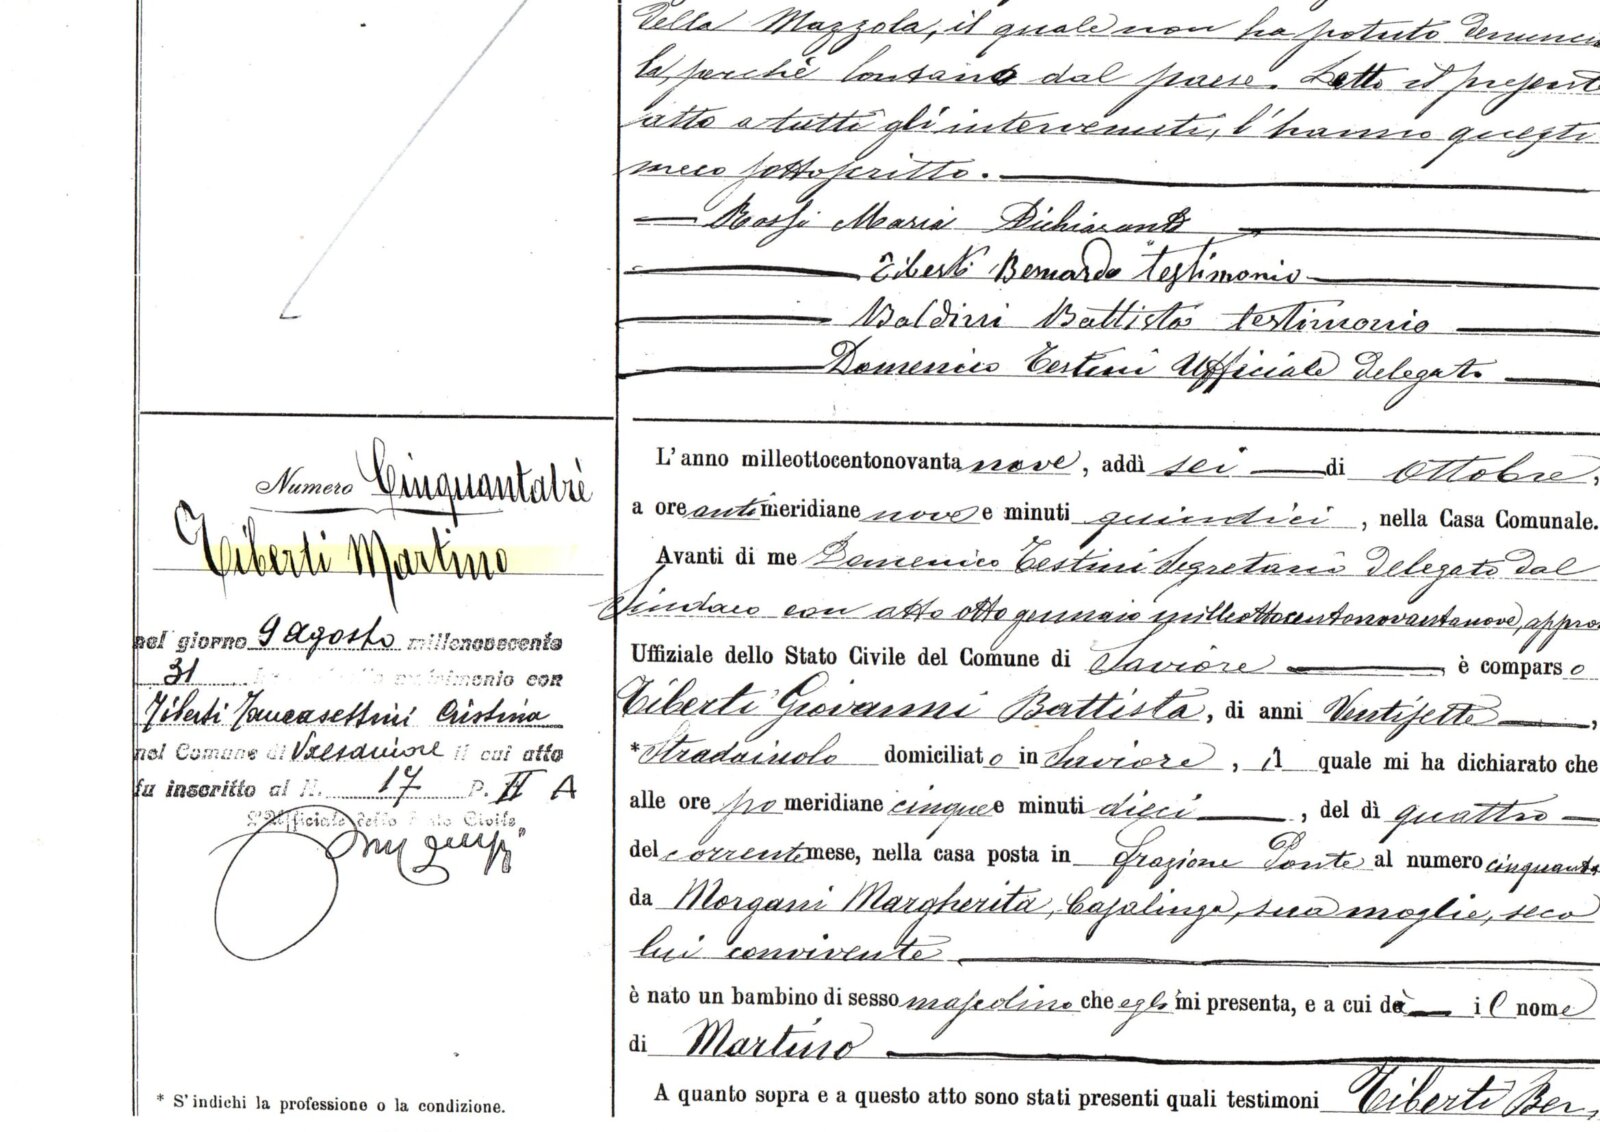 della Mazzola, il quale non ha potuto denuncia
la, perchè lontano dal paese. Letto il presente
atto a tutti gli intervenuti, l'hanno questi
meco sottoscritto.
Rossi Maria Dichiarante
Tiberti Bernardo testimonio
Boldini Battista testimonio
Domenico Testini Ufficiale Delegato
Numero Cinquantatrè
Tiberti Martino
nel giorno 9 agosto millenovecento
31 matrimonio con
Tiberti Cristina
nel Comune di Valsaviore il cui atto
fu inscritto al N. 17 P. II A
L'Ufficiale dello Stato Civile
* S'indichi la professione o la condizione.
L'anno milleottocentonovantanove, addì sei di Ottobre,
a ore antimeridiane nove e minuti quindici, nella Casa Comunale.
Avanti di me Domenico Testini Segretario Delegato dal
Sindaco con atto otto gennaio milleottocentonovantanove, appro
Uffiziale dello Stato Civile del Comune di Saviore è comparso
Tiberti Giovanni Battista, di anni Ventisette,
*Stradaiuolo domiciliato in Saviore, il quale mi ha dichiarato che
alle ore pomeridiane cinque e minuti dieci, del dì quattro
del corrente mese, nella casa posta in frazione Ponte al numero cinquanta
da Morgani Margherita, Casalinga, sua moglie, seco
lui convivente
è nato un bambino di sesso mascolino che egli mi presenta, e a cui dà il nome
di Martino
A quanto sopra e a questo atto sono stati presenti quali testimoni Tiberti Ber